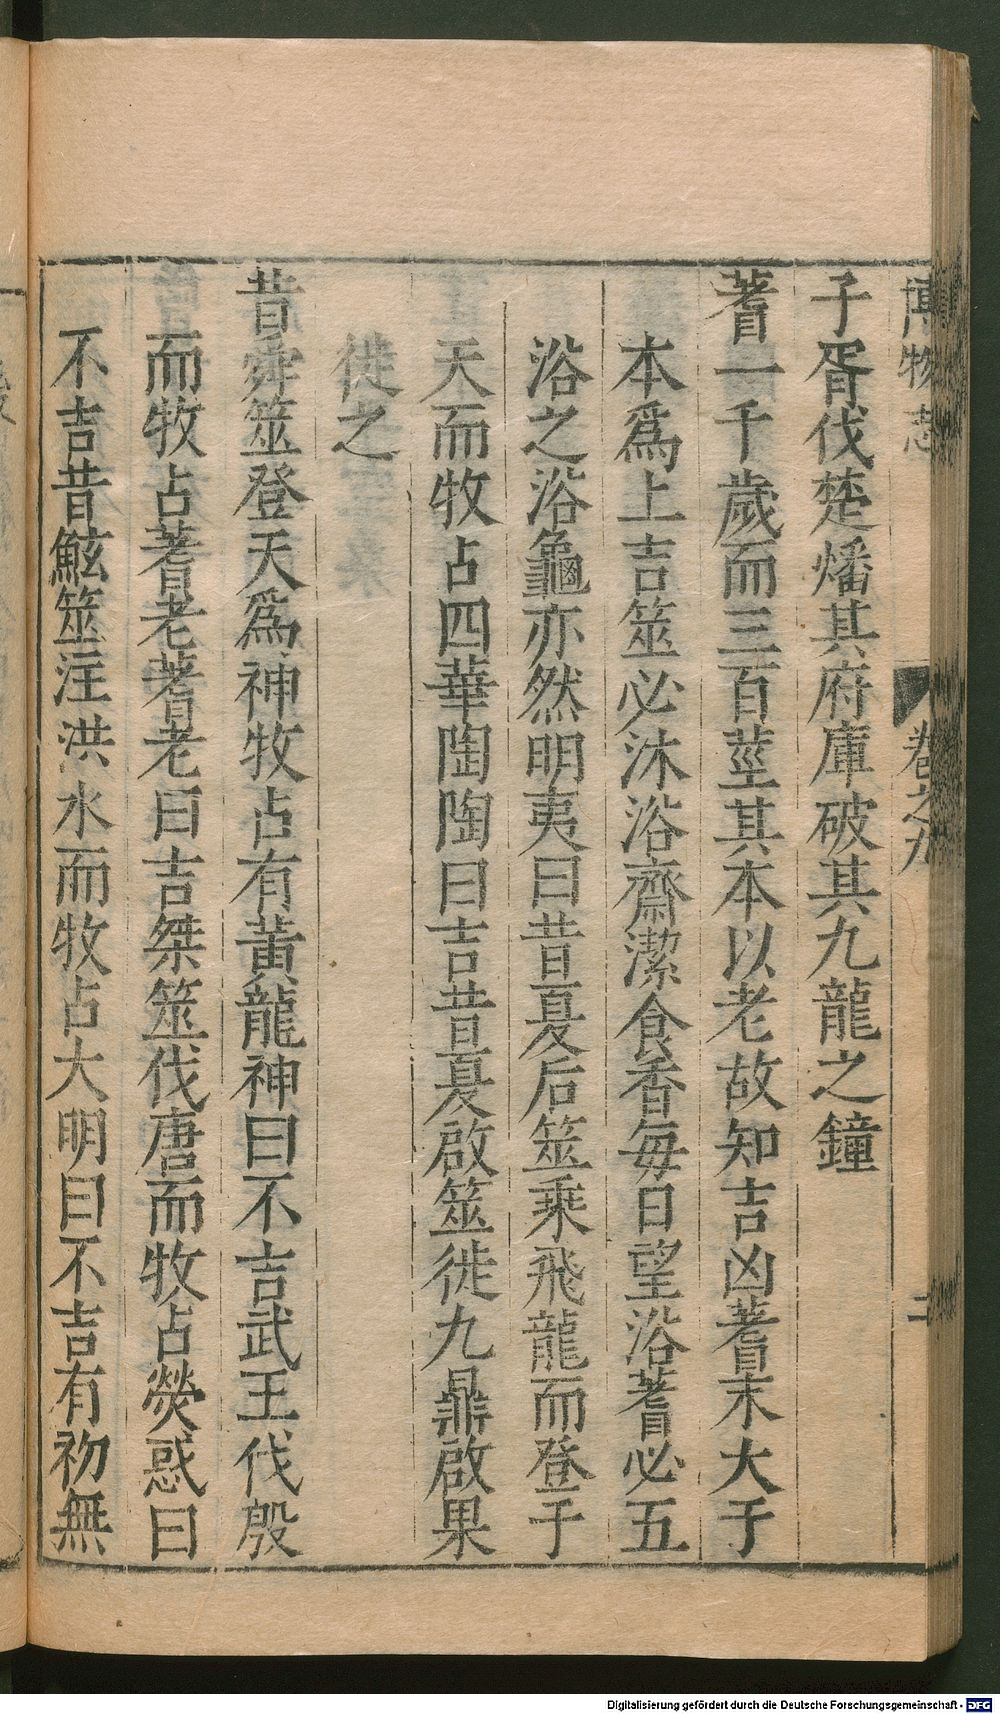 博物志 卷之九 二
子胥伐楚燔其府庫破其九龍之鐘
蓍一千歲而三百莖其本以老故知吉凶蓍末大于
本爲上吉筮必沐浴齋潔食香每日望浴蓍必五
浴之浴龜亦然明夷曰昔夏后筮乘飛龍而登于
天而牧占四華陶陶曰吉昔夏啟筮徙九鼎啟果
徙之
昔舜筮登天爲神牧占有黃龍神曰不吉武王伐殷
而牧占蓍老蓍老曰吉桀筮伐唐而牧占熒惑曰
不吉昔鮌筮注洪水而牧占大明曰不吉有初無
Digitalisierung gefördert durch die Deutsche Forschungsgemeinschaft - DFG